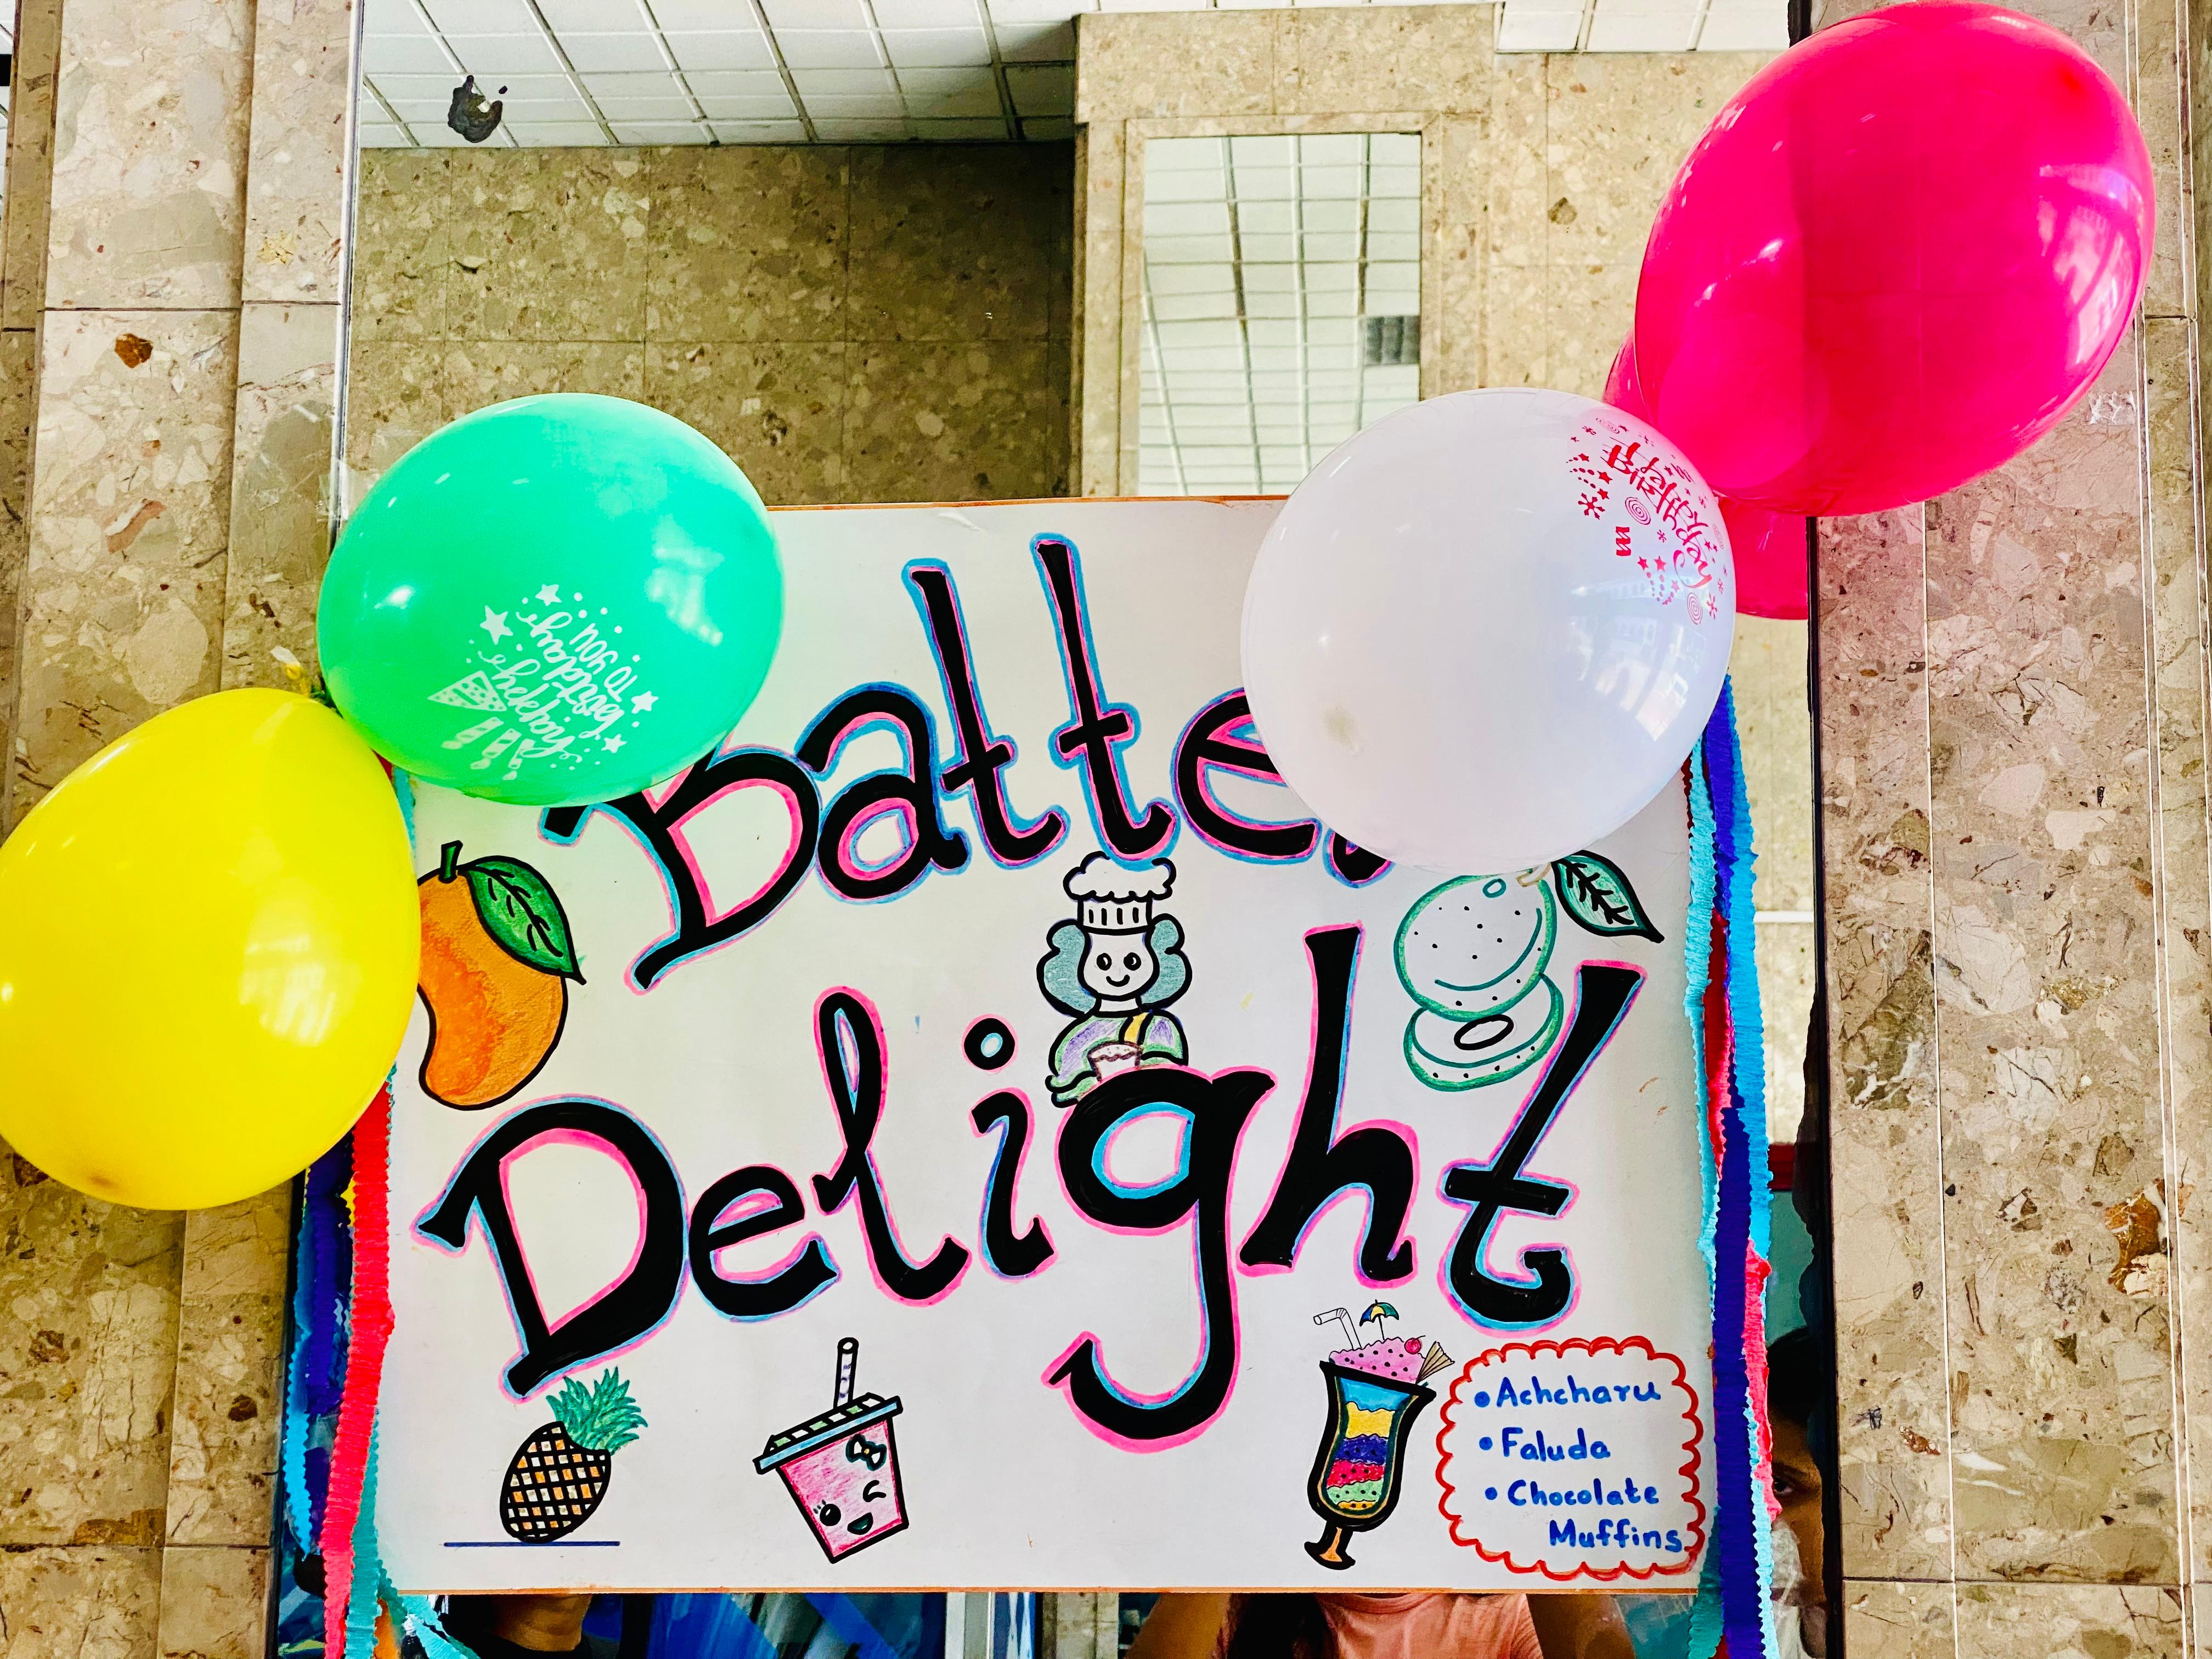 happy
birthday
TO YOU
Happy
Batter
Delight
• Achcharu
• Faluda
• Chocolate
Muffins